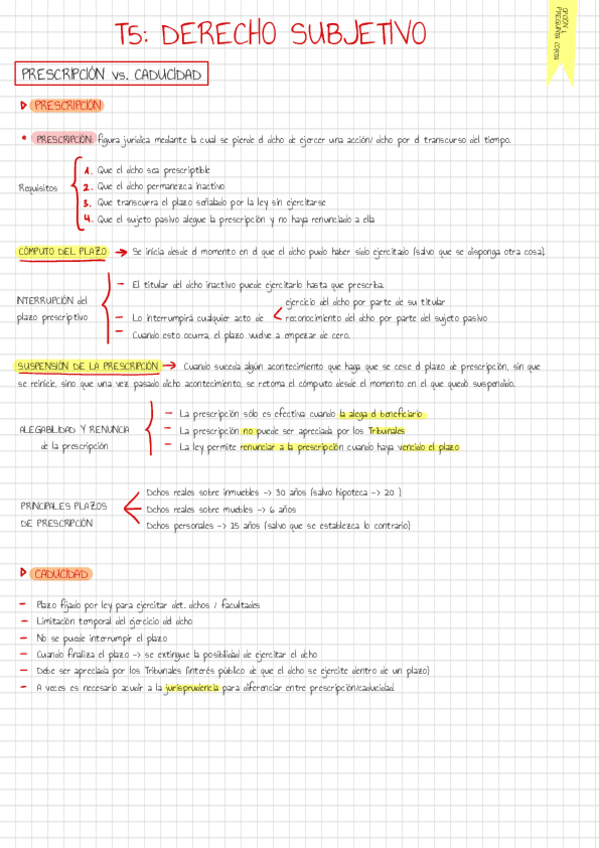 T5: DERECHO SUBJETIVO
OPCIÓN 1
PREGUNTA CORTA
PRESCRIPCIÓN vs. CADUCIDAD
PRESCRIPCIÓN
• PRESCRIPCIÓN: figura jurídica mediante la cual se pierde el dcho de ejercer una acción/ dcho por el transcurso del tiempo.
Requisitos
1. Que el dcho sea prescriptible
2. Que el dcho permanezca inactivo
3. Que transcurra el plazo señalado por la ley sin ejercitarse
4. Que el sujeto pasivo alegue la prescripción y no haya renunciado a ella
CÓMPUTO DEL PLAZO → Se inicia desde el momento en el que el dcho pudo haber sido ejercitado (salvo que se disponga otra cosa).
INTERRUPCIÓN del
plazo prescriptivo
– El titular del dcho inactivo puede ejercitarlo hasta que prescriba.
– Lo interrumpirá cualquier acto de
ejercicio del dcho por parte de su titular
reconocimiento del dcho por parte del sujeto pasivo
– Cuando esto ocurra, el plazo vuelve a empezar de cero.
SUSPENSIÓN DE LA PRESCRIPCIÓN → Cuando suceda algún acontecimiento que haga que se cese el plazo de prescripción, sin que
se reinicie, sino que una vez pasado dicho acontecimiento, se retoma el cómputo desde el momento en el que quedó suspendido.
ALEGABILIDAD Y RENUNCIA
de la prescripción
– La prescripción sólo es efectiva cuando la alega el beneficiario
– La prescripción no puede ser apreciada por los Tribunales
– La ley permite renunciar a la prescripción cuando haya vencido el plazo
PRINCIPALES PLAZOS
DE PRESCRIPCIÓN
Dchos reales sobre inmuebles -> 30 años (salvo hipoteca -> 20 )
Dchos reales sobre muebles -> 6 años
Dchos personales -> 15 años (salvo que se establezca lo contrario)
CADUCIDAD
– Plazo fijado por ley para ejercitar det. dchos / facultades
– Limitación temporal del ejercicio del dcho
– No se puede interrumpir el plazo
– Cuando finaliza el plazo -> se extingue la posibilidad de ejercitar el dcho
– Debe ser apreciada por los Tribunales (interés público de que el dcho se ejercite dentro de un plazo)
– A veces es necesario acudir a la jurisprudencia para diferenciar entre prescripción/caducidad.